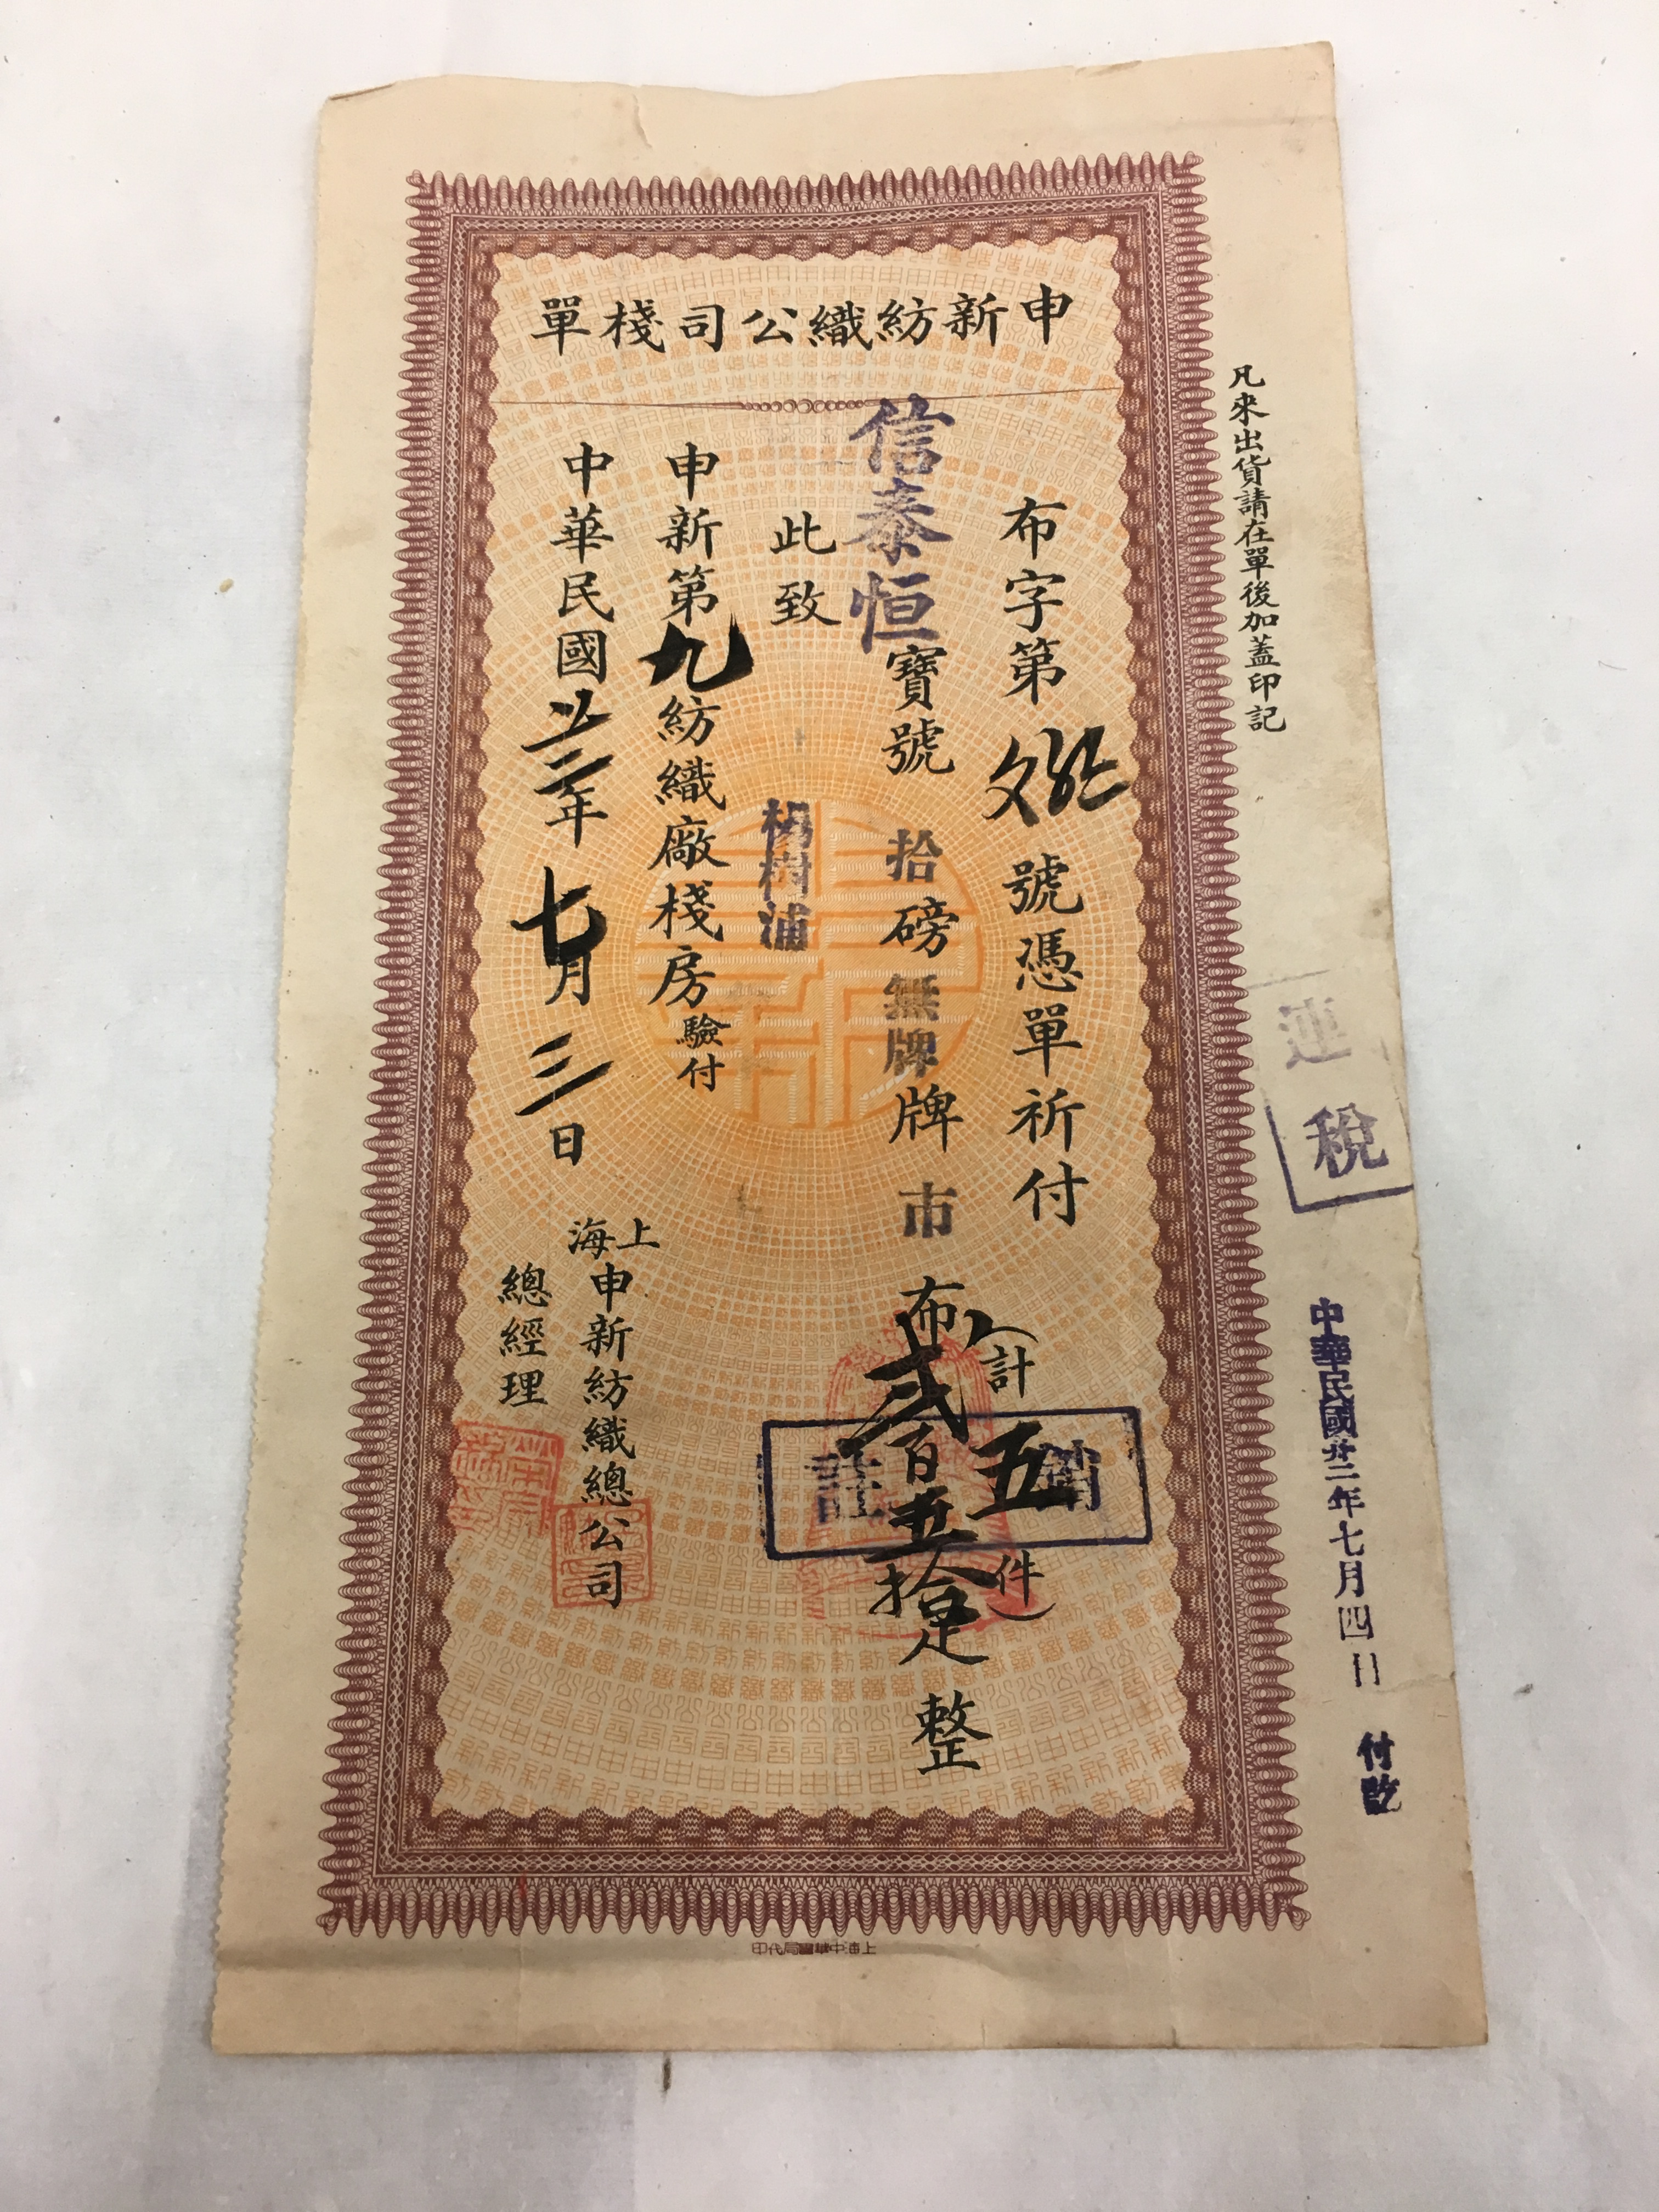 申新紡織公司棧單
凡來出貨請在單後加蓋印記
連稅
中華民國廿二年七月四日 付訖
布字第 號憑單祈付
(計五件)
信泰恒寶號拾磅無牌牌市布貳百五拾疋整
註銷
此致
楊樹浦
申新第九紡織廠棧房驗付
中華民國廿二年七月三日
上海申新紡織總公司
總經理
上海中華書局代印